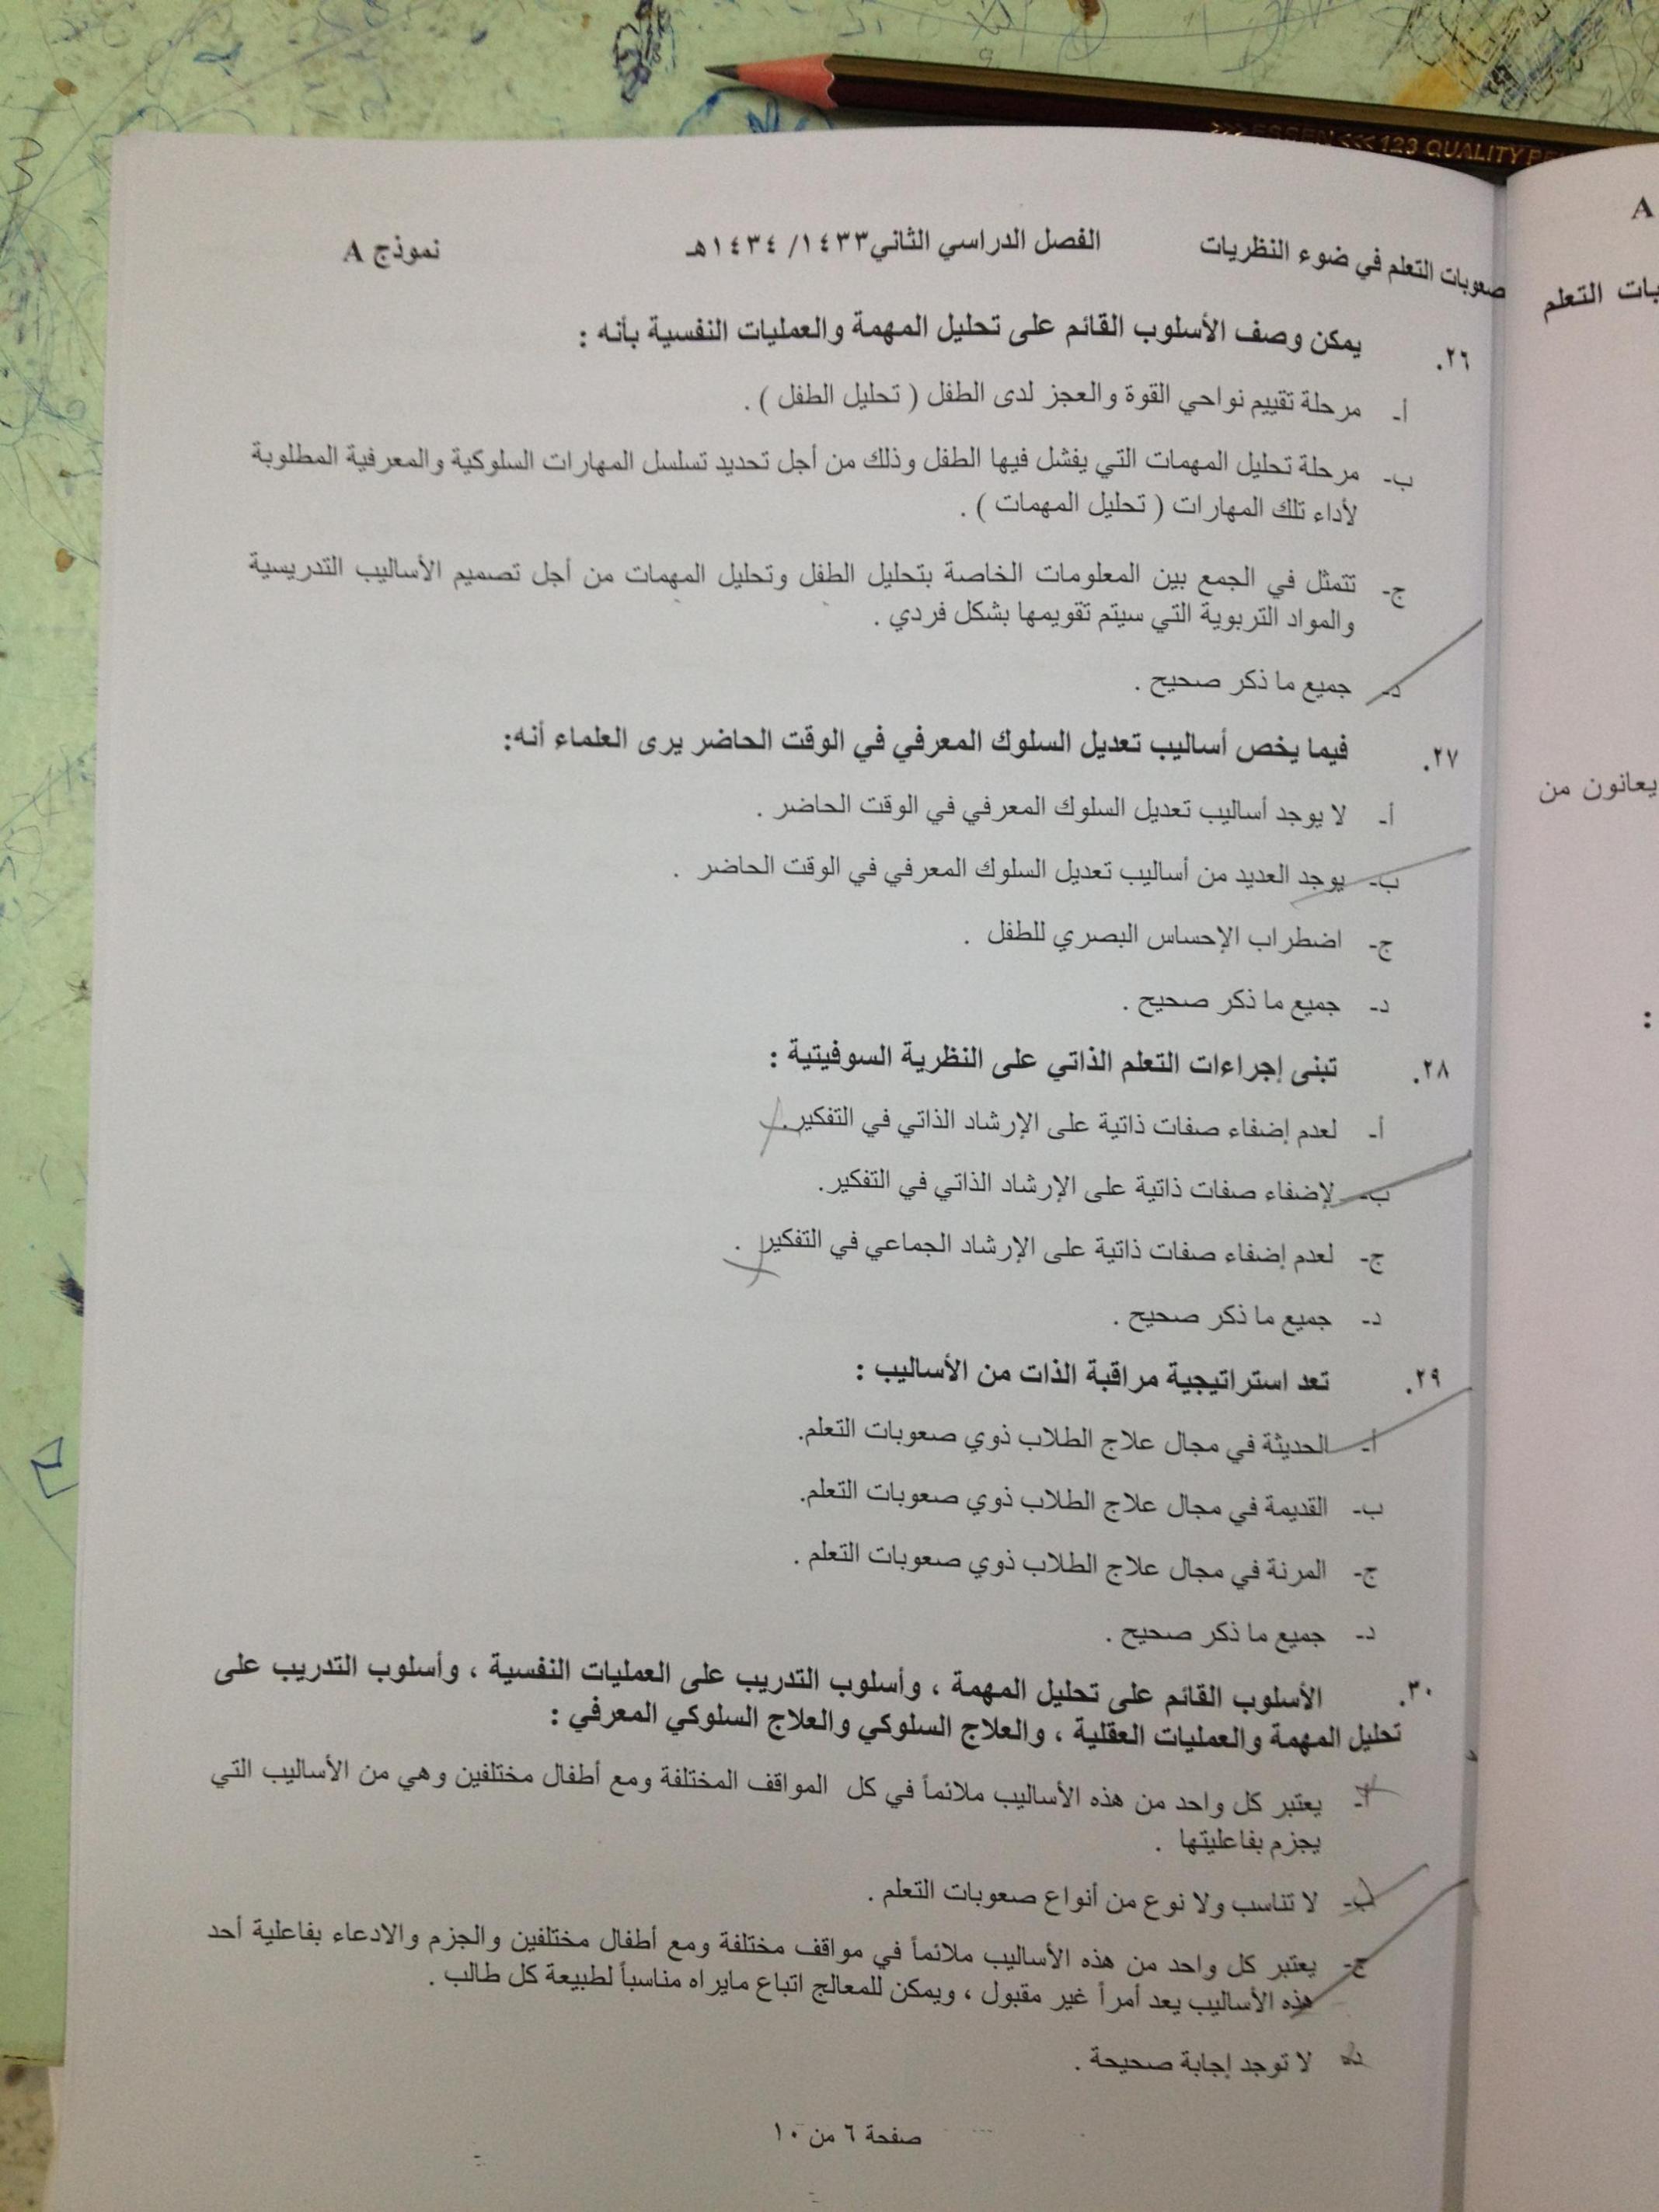 >>> ESSEN <<< 123 QUALITY
صعوبات التعلم في ضوء النظريات الفصل الدراسي الثاني ١٤٣٣/ ١٤٣٤هـ نموذج A
٢٦. يمكن وصف الأسلوب القائم على تحليل المهمة والعمليات النفسية بأنه :
أ- مرحلة تقييم نواحي القوة والعجز لدى الطفل ( تحليل الطفل ) .
ب- مرحلة تحليل المهمات التي يفشل فيها الطفل وذلك من أجل تحديد تسلسل المهارات السلوكية والمعرفية المطلوبة
لأداء تلك المهارات ( تحليل المهمات ) .
ج- تتمثل في الجمع بين المعلومات الخاصة بتحليل الطفل وتحليل المهمات من أجل تصميم الأساليب التدريسية
والمواد التربوية التي سيتم تقويمها بشكل فردي .
د- جميع ما ذكر صحيح .
٢٧. فيما يخص أساليب تعديل السلوك المعرفي في الوقت الحاضر يرى العلماء أنه:
أ- لا يوجد أساليب تعديل السلوك المعرفي في الوقت الحاضر .
ب- يوجد العديد من أساليب تعديل السلوك المعرفي في الوقت الحاضر .
ج- اضطراب الإحساس البصري للطفل .
د- جميع ما ذكر صحيح .
٢٨. تبنى إجراءات التعلم الذاتي على النظرية السوفيتية :
أ- لعدم إضفاء صفات ذاتية على الإرشاد الذاتي في التفكير.
ب- لإضفاء صفات ذاتية على الإرشاد الذاتي في التفكير.
ج- لعدم إضفاء صفات ذاتية على الإرشاد الجماعي في التفكير .
د- جميع ما ذكر صحيح .
٢٩. تعد استراتيجية مراقبة الذات من الأساليب :
أ- الحديثة في مجال علاج الطلاب ذوي صعوبات التعلم.
ب- القديمة في مجال علاج الطلاب ذوي صعوبات التعلم.
ج- المرنة في مجال علاج الطلاب ذوي صعوبات التعلم .
د- جميع ما ذكر صحيح .
٣٠. الأسلوب القائم على تحليل المهمة ، وأسلوب التدريب على العمليات النفسية ، وأسلوب التدريب على
تحليل المهمة والعمليات العقلية ، والعلاج السلوكي والعلاج السلوكي المعرفي :
أ- يعتبر كل واحد من هذه الأساليب ملائماً في كل المواقف المختلفة ومع أطفال مختلفين وهي من الأساليب التي
يجزم بفاعليتها .
ب- لا تناسب ولا نوع من أنواع صعوبات التعلم .
ج- يعتبر كل واحد من هذه الأساليب ملائماً في مواقف مختلفة ومع أطفال مختلفين والجزم والادعاء بفاعلية أحد
هذه الأساليب يعد أمراً غير مقبول ، ويمكن للمعالج اتباع مايراه مناسباً لطبيعة كل طالب .
د- لا توجد إجابة صحيحة .
صفحة ٦ من ١٠
A
التعلم
يعانون من
: